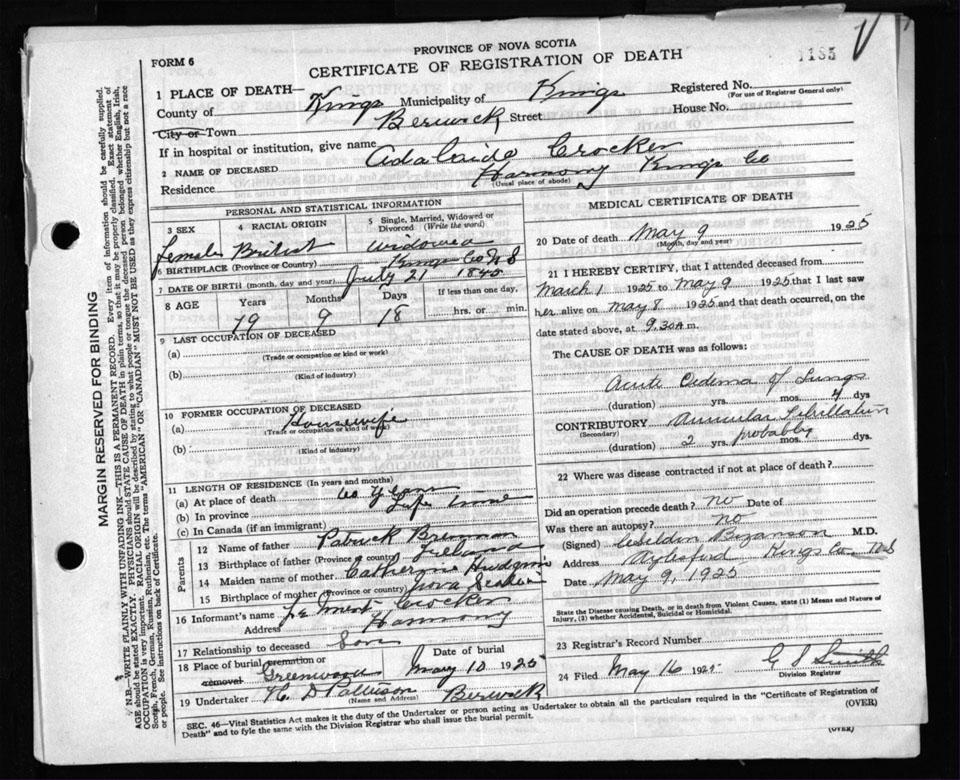 PROVINCE OF NOVA SCOTIA
1185
FORM 6
CERTIFICATE OF REGISTRATION OF DEATH
1 PLACE OF DEATH—
Registered No.
(For use of Registrar General only)
County of Kings Municipality of Kings
City or Town Berwick Street House No.
If in hospital or institution, give name
2 NAME OF DECEASED Adalaide Crocker
Residence Harmony Kings Co
(Usual place of abode)
PERSONAL AND STATISTICAL INFORMATION
3 SEX Female
4 RACIAL ORIGIN British
5 Single, Married, Widowed or Divorced (Write the word) Widowed
6 BIRTHPLACE (Province or Country) Kings Co N S
7 DATE OF BIRTH (month, day and year) July 21 1845
8 AGE Years Months Days If less than one day,
79 9 18 hrs. or min.
9 LAST OCCUPATION OF DECEASED
(a)
(Trade or occupation or kind or work)
(b)
(Kind of industry)
10 FORMER OCCUPATION OF DECEASED
(a) Housewife
(Trade or occupation or kind of work)
(b)
(Kind of industry)
11 LENGTH OF RESIDENCE (In years and months)
(a) At place of death 60 Years
(b) In province Life time
(c) In Canada (if an immigrant)
Parents
12 Name of father Patrick Brennan
13 Birthplace of father (Province or country) Ireland
14 Maiden name of mother Catherine Hudgson
15 Birthplace of mother (Province or country) Nova Scotia
16 Informant's name Crocker
Address Harmony
17 Relationship to deceased Son
18 Place of burial cremation or removal Greenwood Date of burial May 10 1925
19 Undertaker H. D Pattison Berwick
(Name and Address)
MEDICAL CERTIFICATE OF DEATH
20 Date of death May 9 1925
(Month, day and year)
21 I HEREBY CERTIFY, that I attended deceased from
March 1 1925 to May 9 1925 that I last saw
her alive on May 8 1925 and that death occurred, on the
date stated above, at 9.30 A m.
The CAUSE OF DEATH was as follows:
Acute Oedema of Lungs
(duration) yrs. mos. 4 dys
CONTRIBUTORY Auricular Fibrillation
(Secondary)
(duration) 2 yrs. probably mos. dys.
22 Where was disease contracted if not at place of death?
Did an operation precede death? no Date of
Was there an autopsy? no
(Signed) M.D.
Address Aylesford Kings Co N S
Date May 9, 1925
State the Disease causing Death, or in death from Violent Causes, state (1) Means and Nature of
Injury, (2) whether Accidental, Suicidal or Homicidal.
23 Registrar's Record Number
24 Filed May 16 1925 G S Smith
Division Registrar
SEC. 46—Vital Statistics Act makes it the duty of the Undertaker or person acting as Undertaker to obtain all the particulars required in the "Certificate of Registration of
Death" and to fyle the same with the Division Registrar who shall issue the burial permit.
(OVER)
(OVER)
MARGIN RESERVED FOR BINDING
N.B.—WRITE PLAINLY WITH UNFADING INK—THIS IS A PERMANENT RECORD. Every item of information should be carefully supplied.
AGE should be stated EXACTLY. PHYSICIANS should STATE CAUSE OF DEATH in plain terms, so that it may be properly classified. Exact statement of
OCCUPATION is very important. RACIAL ORIGIN will be described by stating to what people or tongue the deceased person belonged whether English, Irish,
Scotch, French, German, Russian, Ruthenian, etc. The terms "AMERICAN" OR "CANADIAN" MUST NOT BE USED as they express citizenship but not a race
or people. See instructions on back of Certificate.